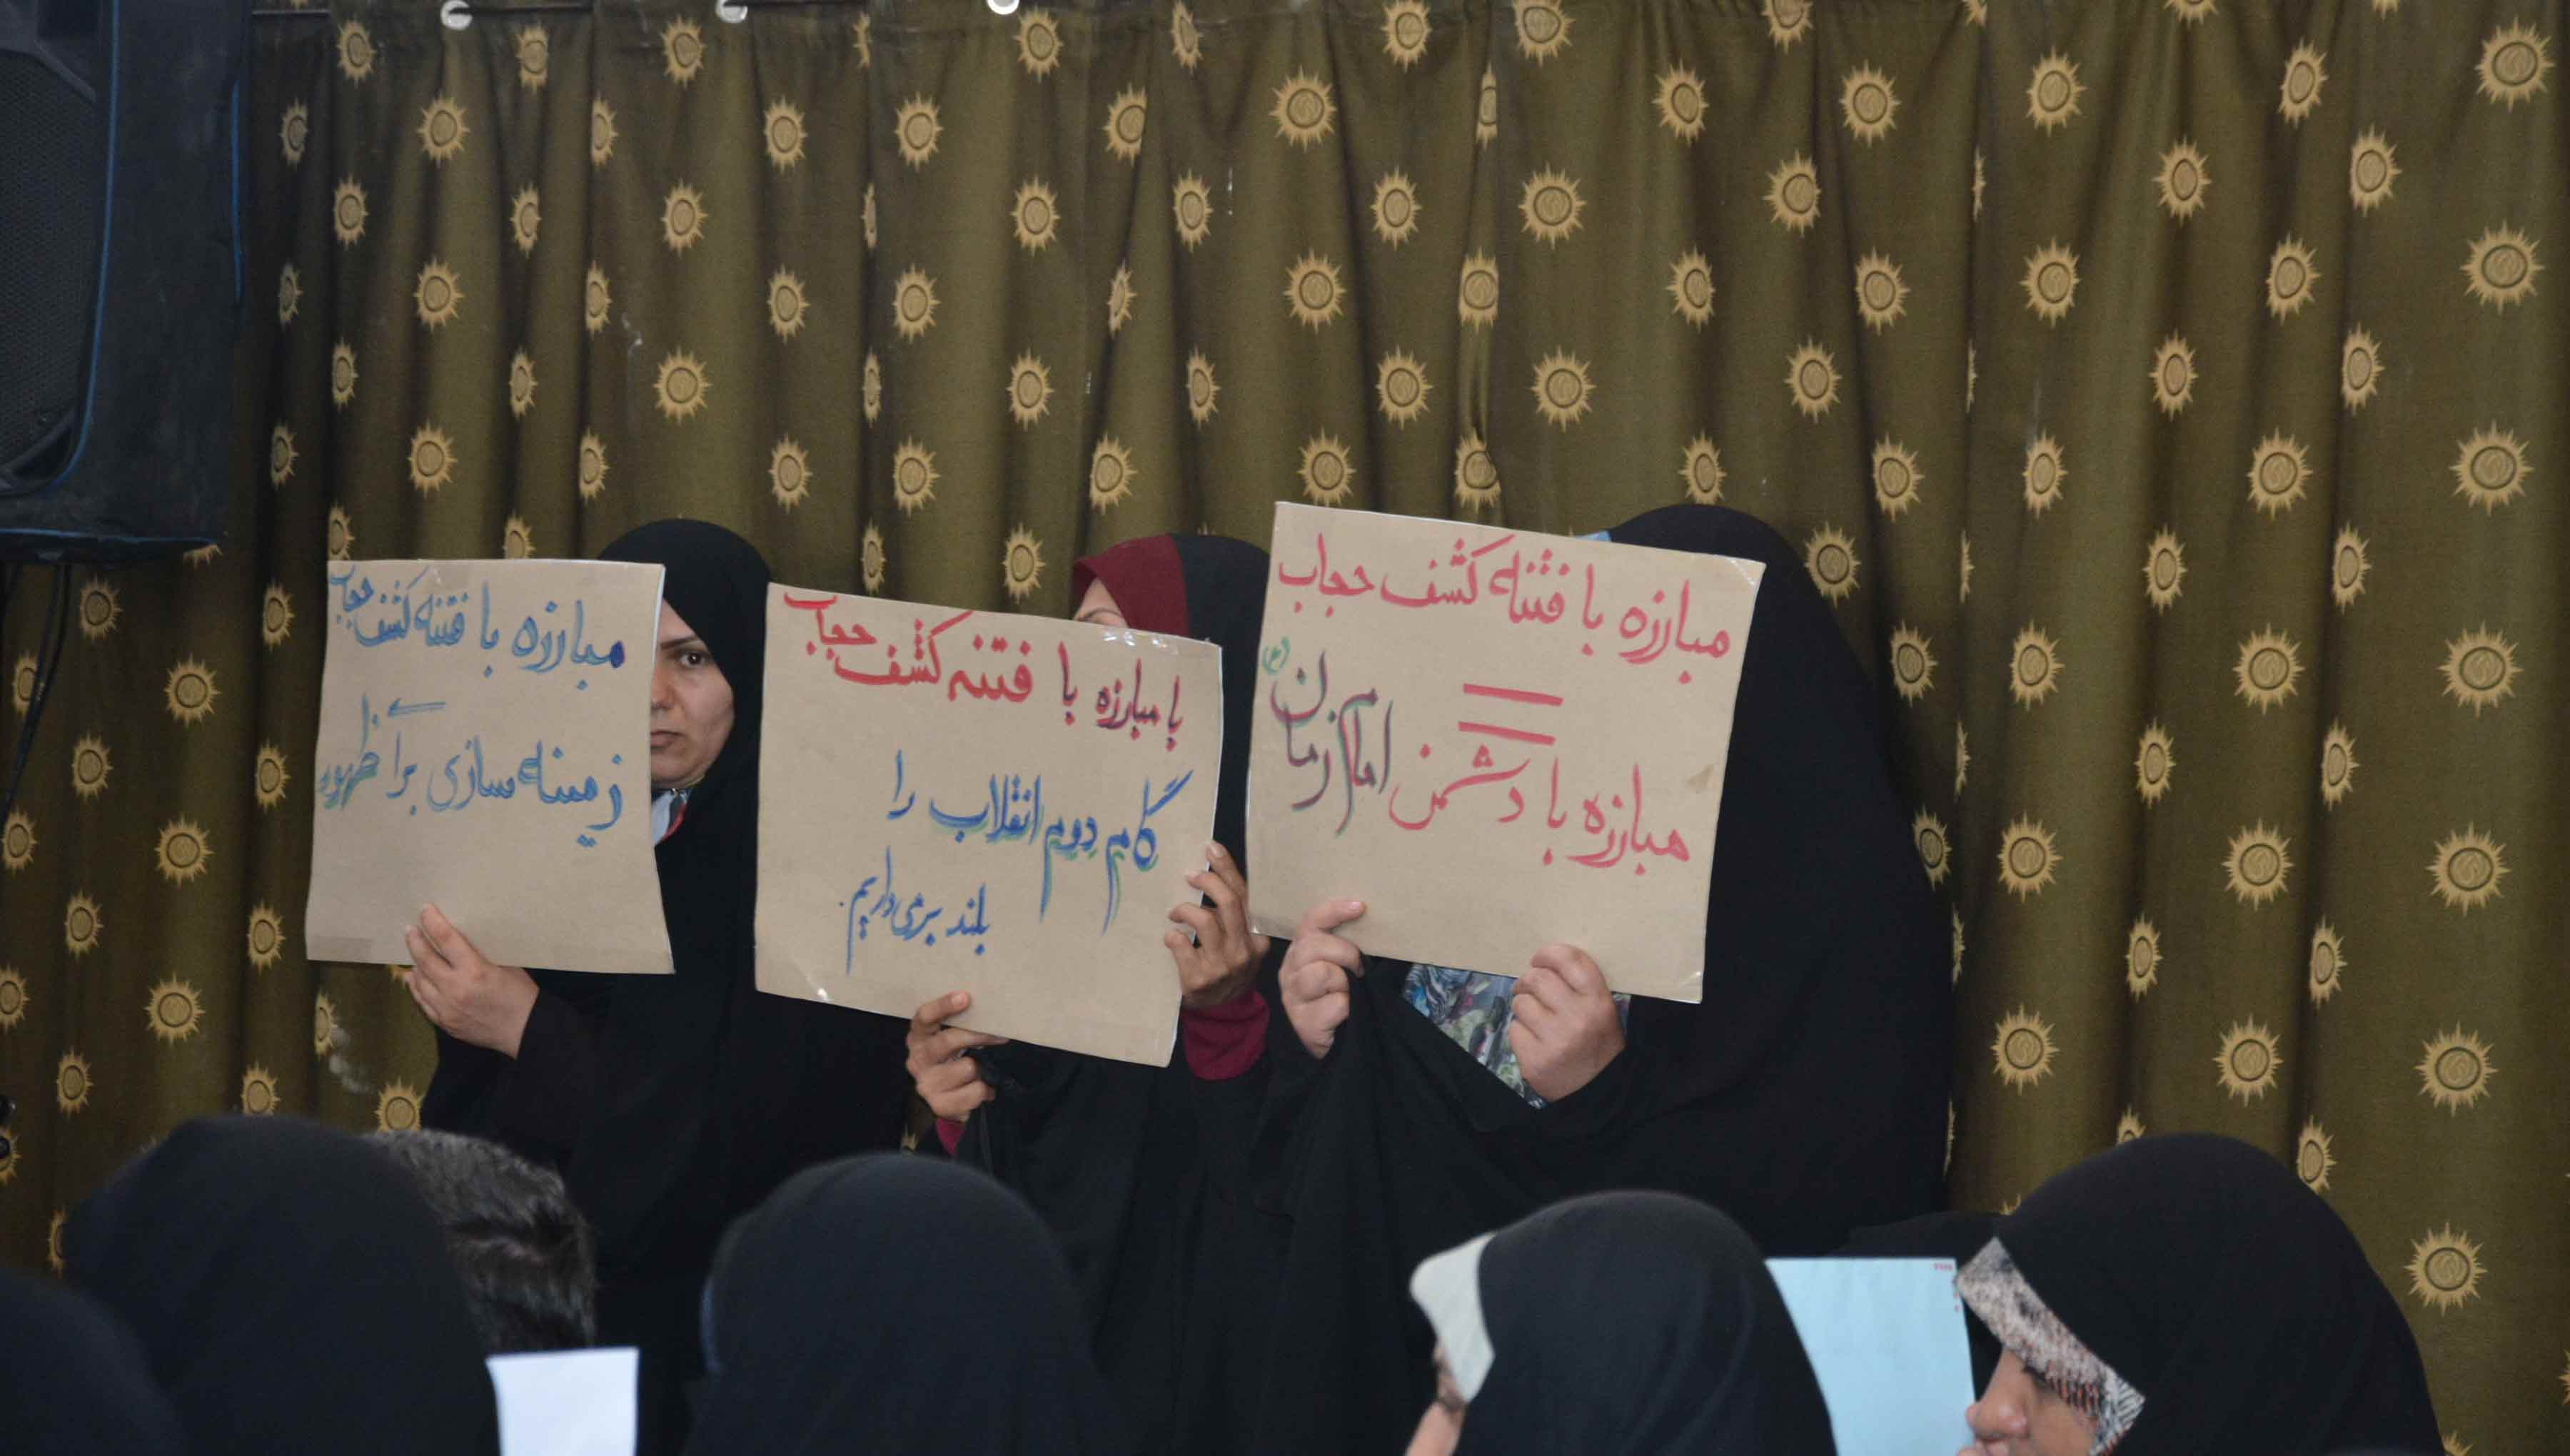 مبارزه با فتنه کشف حجاب
=
مبارزه با دشمن امام زمان (عج)
با مبارزه با فتنه کشف حجاب
گام دوم انقلاب را
بلند برمی داریم.
مبارزه با فتنه کشف حجاب
زمینه سازی برا ظهور